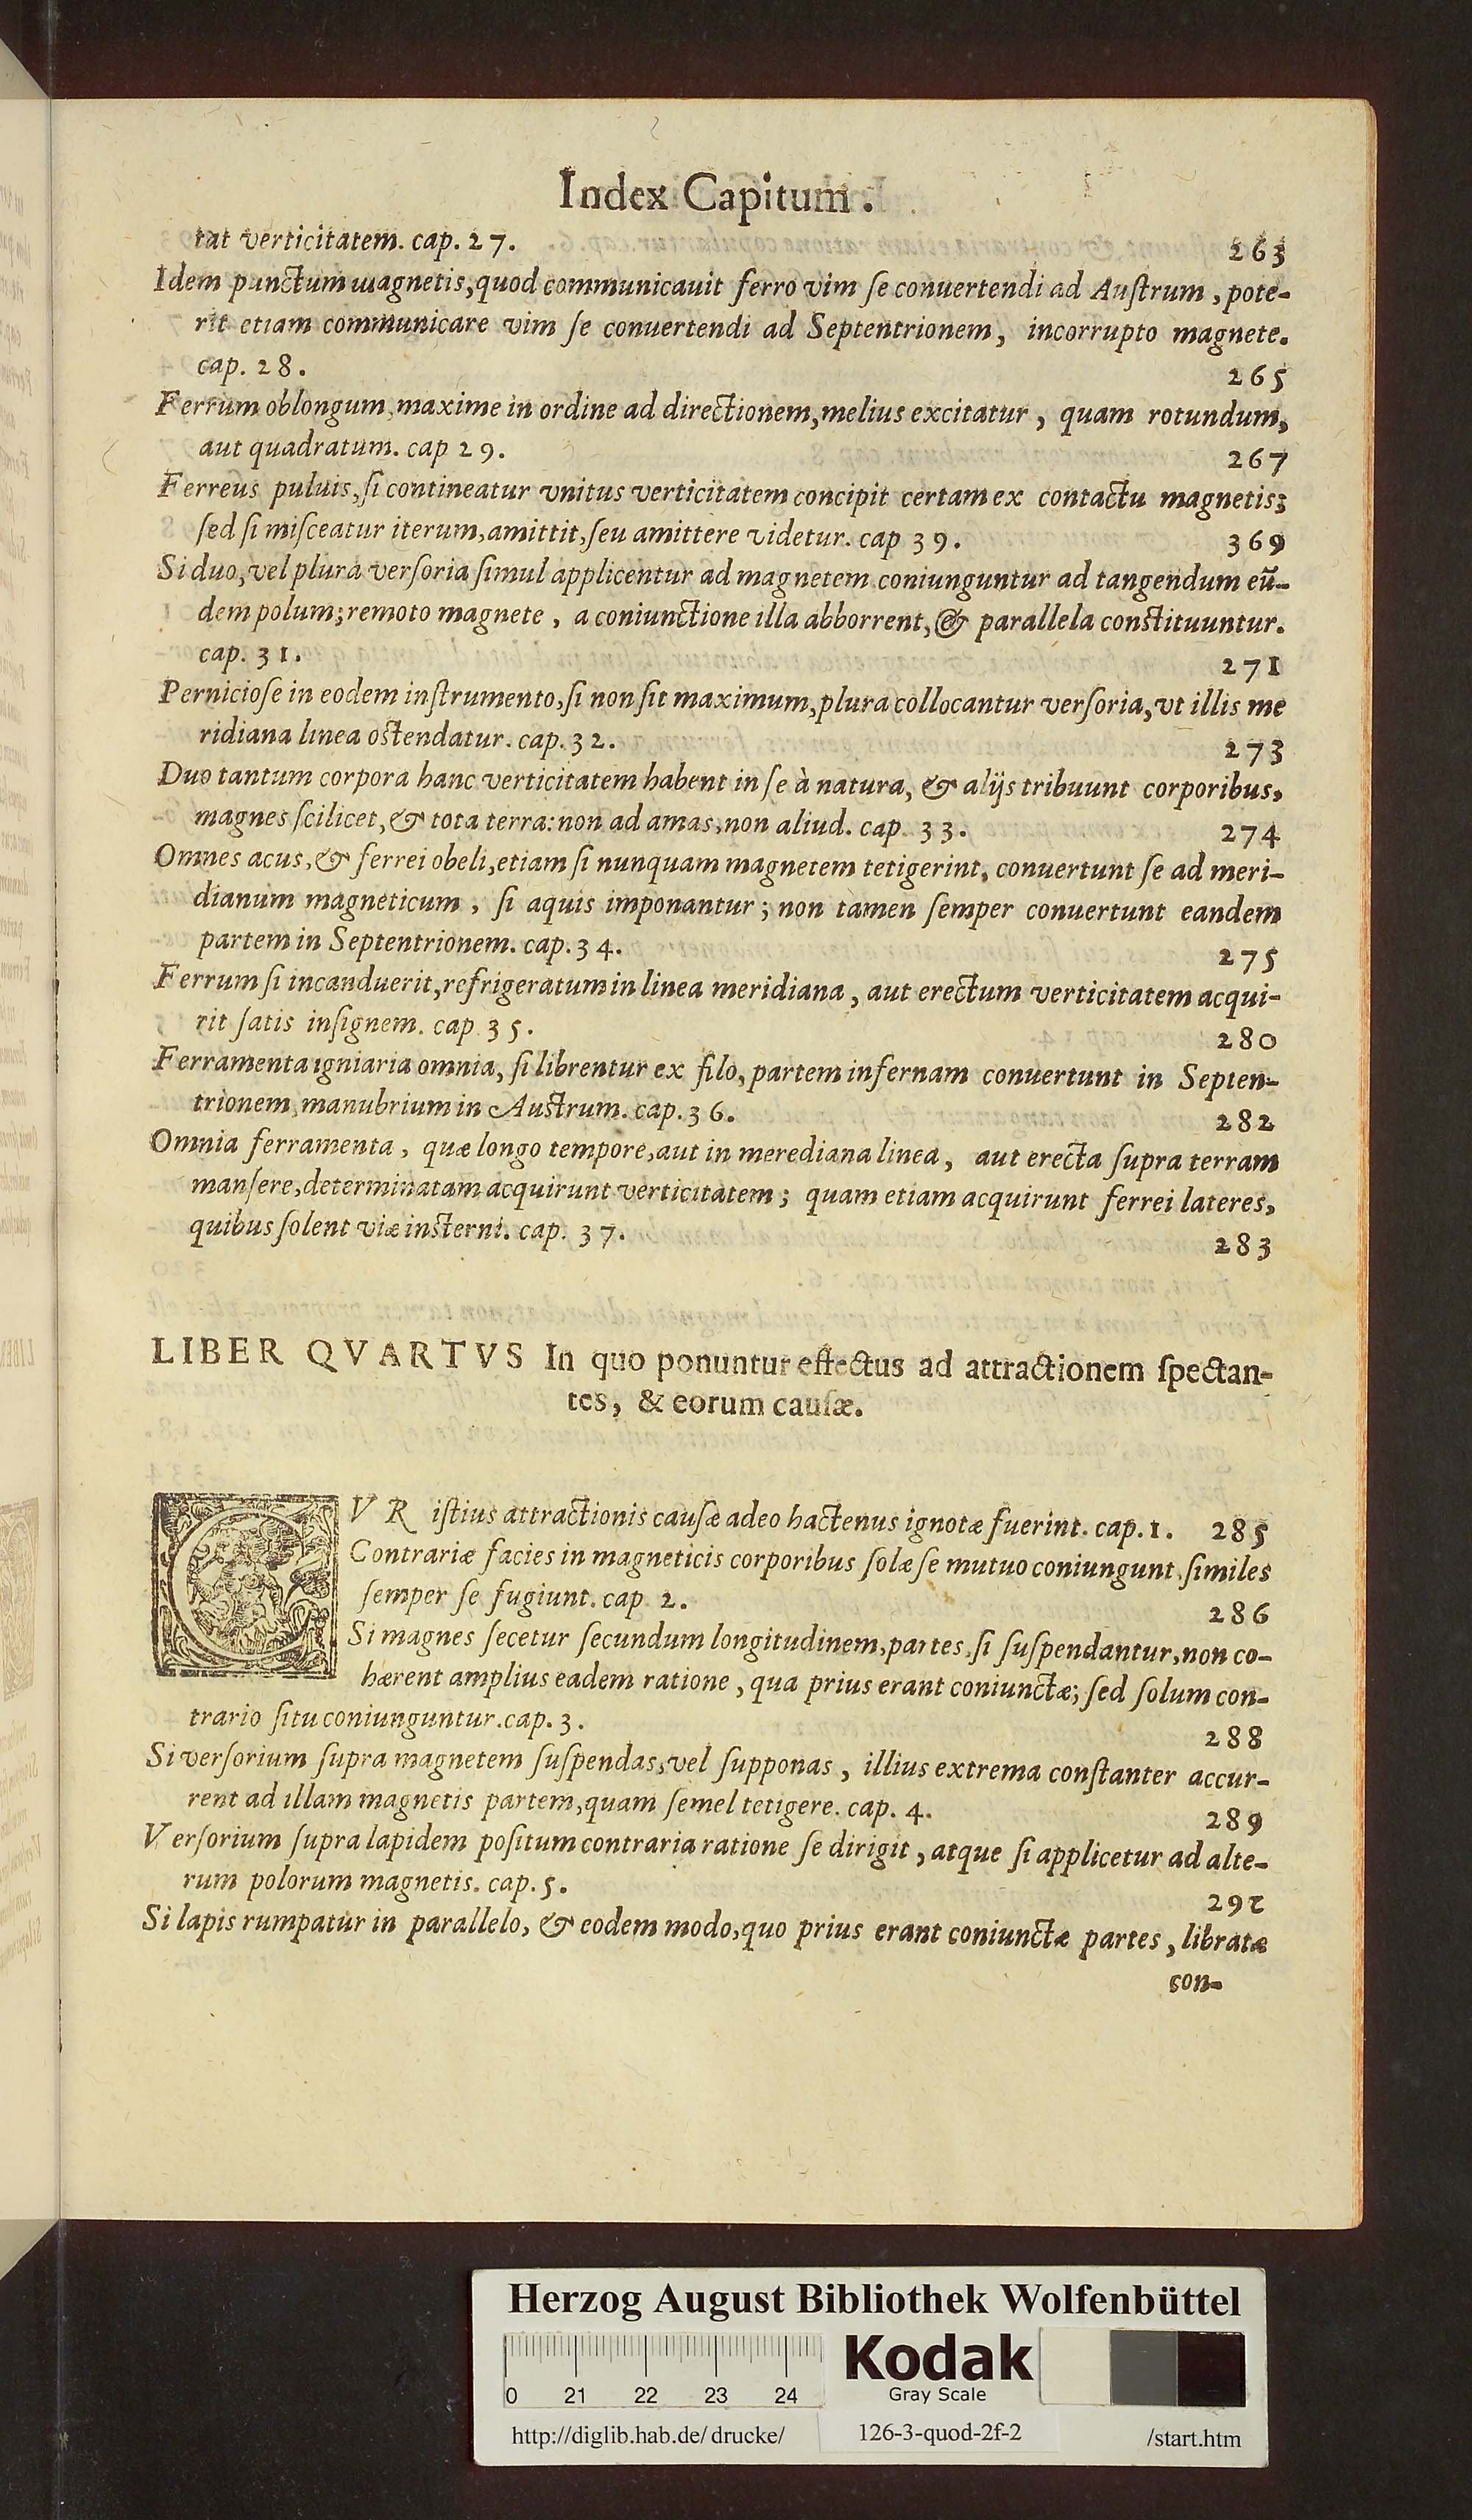 Index Capitum.
tat verticitatem. cap. 27. 263
Idem punctum magnetis, quod communicauit ferro vim ſe conuertendi ad Auſtrum, pote-
rit etiam communicare vim ſe conuertendi ad Septentrionem, incorrupto magnete.
cap. 28. 265
Ferrum oblongum, maxime in ordine ad directionem, melius excitatur, quam rotundum,
aut quadratum. cap 29. 267
Ferreus puluis, ſi contineatur vnitus verticitatem concipit certam ex contactu magnetis;
ſed ſi miſceatur iterum, amittit, ſeu amittere videtur. cap 39. 369
Si duo, vel plura verſoria ſimul applicentur ad magnetem coniunguntur ad tangendum eũ-
dem polum; remoto magnete, a coniunctione illa abborrent, & parallela conſtituuntur.
cap. 31. 271
Pernicioſe in eodem inſtrumento, ſi non ſit maximum, plura collocantur verſoria, vt illis me
ridiana linea oſtendatur. cap. 32. 273
Duo tantum corpora hanc verticitatem habent in ſe à natura, & alijs tribuunt corporibus,
magnes ſcilicet, & tota terra: non ad amas, non aliud. cap. 33. 274
Omnes acus, & ferrei obeli, etiam ſi nunquam magnetem tetigerint, conuertunt ſe ad meri-
dianum magneticum, ſi aquis imponantur; non tamen ſemper conuertunt eandem
partem in Septentrionem. cap. 34. 275
Ferrum ſi incanduerit, refrigeratum in linea meridiana, aut erectum verticitatem acqui-
rit ſatis inſignem. cap. 35. 280
Ferramenta igniaria omnia, ſi librentur ex filo, partem infernam conuertunt in Septen-
trionem, manubrium in Auſtrum. cap. 36. 282
Omnia ferramenta, quæ longo tempore, aut in merediana linea, aut erecta ſupra terram
manſere, determinatam acquirunt verticitatem; quam etiam acquirunt ferrei lateres,
quibus ſolent viæ inſterni. cap. 37. 283
LIBER QVARTVS In quo ponuntur effectus ad attractionem ſpectan-
tes, & eorum cauſæ.
CVR iſtius attractionis cauſæ adeo hactenus ignotæ fuerint. cap. 1. 285
Contrariæ facies in magneticis corporibus ſolæ ſe mutuo coniungunt, ſimiles
ſemper ſe fugiunt. cap. 2. 286
Si magnes ſecetur ſecundum longitudinem, partes, ſi ſuſpendantur, non co-
hærent amplius eadem ratione, qua prius erant coniunctæ; ſed ſolum con-
trario ſitu coniunguntur. cap. 3. 288
Si verſorium ſupra magnetem ſuſpendas, vel ſupponas, illius extrema conſtanter accur-
rent ad illam magnetis partem, quam ſemel tetigere. cap. 4. 289
Verſorium ſupra lapidem poſitum contraria ratione ſe dirigit, atque ſi applicetur ad alte-
rum polorum magnetis. cap. 5. 292
Si lapis rumpatur in parallelo, & eodem modo, quo prius erant coniunctæ partes, libratæ
con-
Herzog August Bibliothek Wolfenbüttel
Kodak
Gray Scale
0 21 22 23 24
http://diglib.hab.de/drucke/ 126-3-quod-2f-2 /start.htm